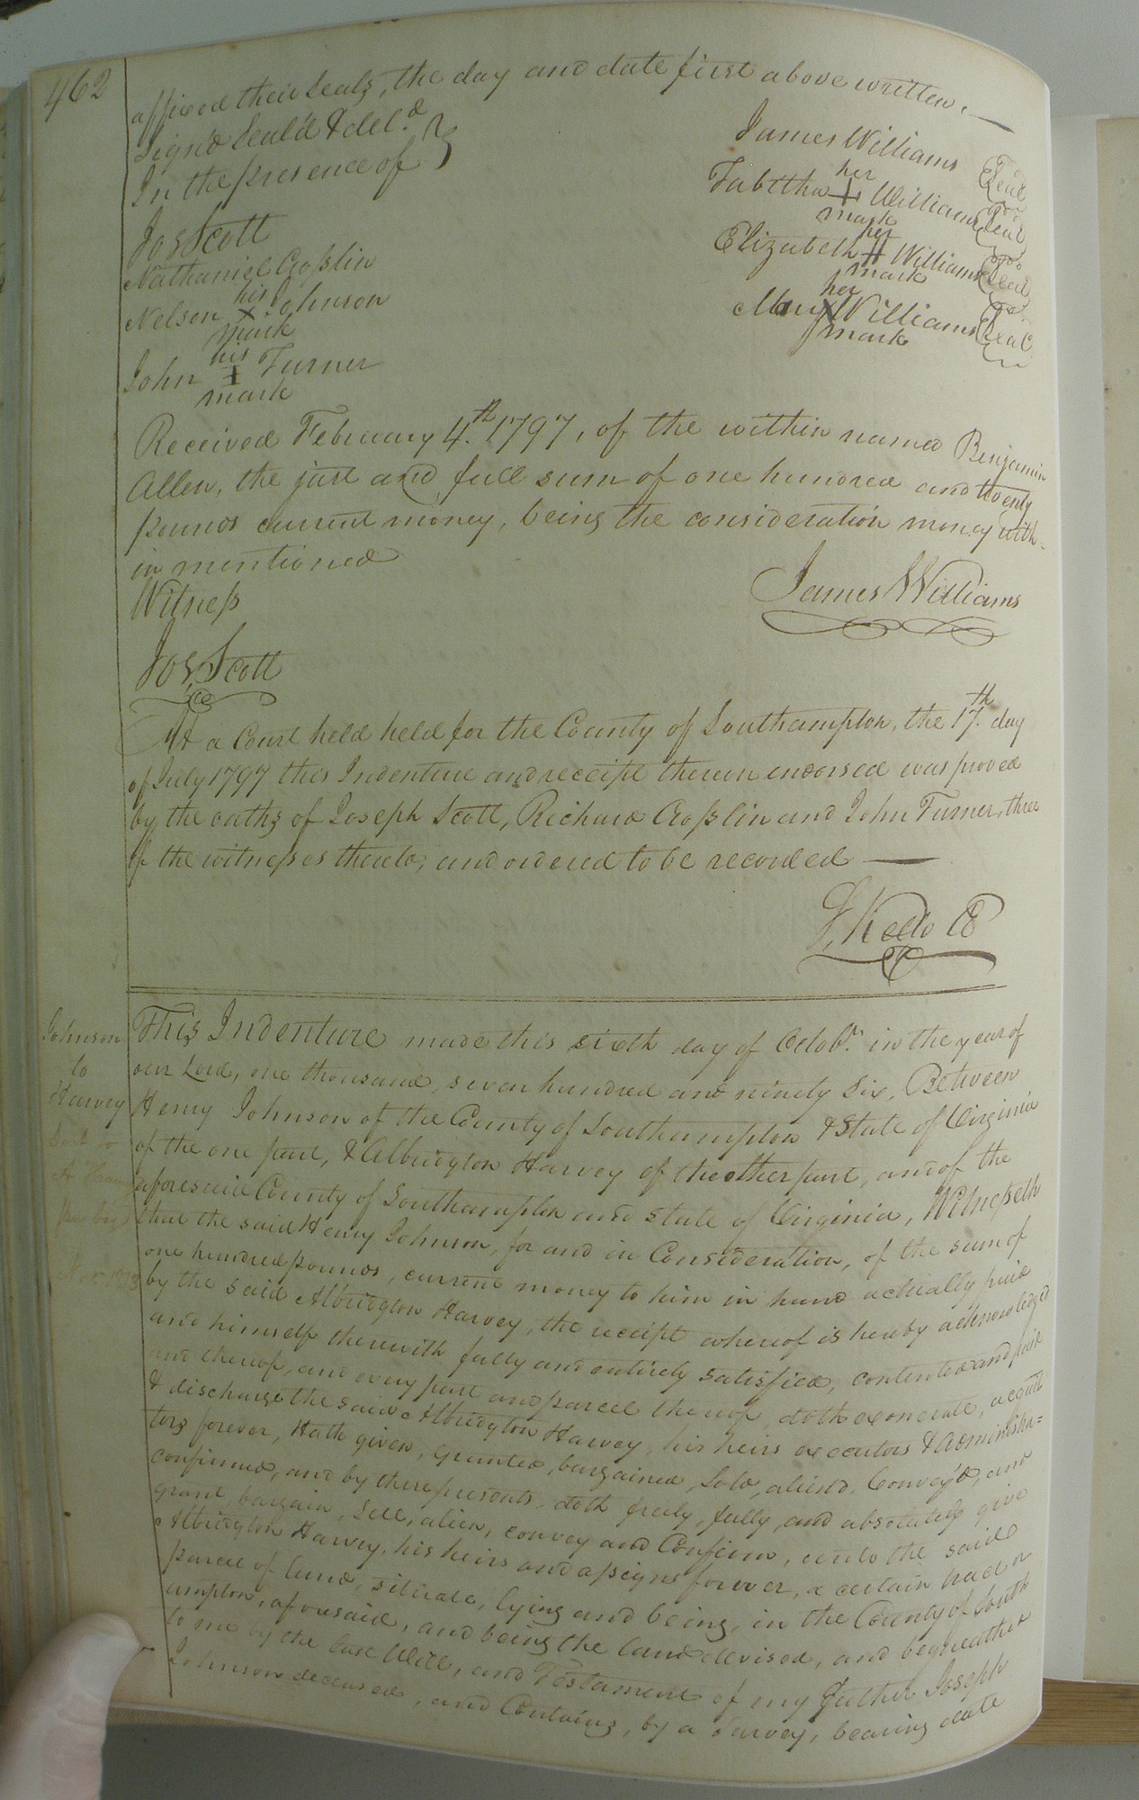 462
affixed their seals, the day and date first above written.
Sign'd Seal'd & del.d
In the presence of
James Williams Seal
her
Tabitha + Williams Seal
mark
her
Elizabeth # Williams Seal
mark
her
Mary X Williams Seal
mark
Jos Scott
Nathaniel Croſslin
his
Nelson X Johnson
mark
his
John I Turner
mark
Received February 4.th 1797, of the within named Benjamin
Allen, the just and full sum of one hundred and twenty
pounds current money, being the consideration money with-
in mentioned
Witneſs
James Williams
Jos Scott
At a Court held held for the County of Southampton, the 17.th day
of July 1797 this Indenture and receipt thereon endorsed was proved
by the oaths of Joseph Scott, Richard Croſslin and John Turner, three
of the witneſses thereto, and ordered to be recorded
S, Kello CC
Johnson
to
Harvey
This Indenture made this sixth day of Octob.r in the year of
our Lord, one thousand, seven hundred and ninety six, Between
Henry Johnson of the County of Southampton & State of Virginia
of the one part, & Albridgton Harvey of the other part, and of the
aforesaid County of Southampton and State of Virginia, Witneſseth
that the said Henry Johnson, for and in Consideration, of the sum of
one hundred pounds, current money to him in hand actually paid
by the said Albridgton Harvey, the receipt whereof is hereby acknowledged
and himself therewith fully and entirely satisfied, contented and paid
and thereof, and every part and parcel thereof, doth exonerate, acquitt
& discharge the said Albridgton Harvey, his heirs executors & Administra=
tors forever, Hath given, granted, bargained, Sold, aliend, Convey'd, and
confirmed, and by these presents, doth freely, fully, and absolutely give
grant, bargain, Sell, alien, convey and Confirm, unto the said
Albridgton Harvey, his heirs and aſsigns forever, a certain tract or
parcel of land, situate, lying and being, in the County of South
ampton, aforesaid, and being the land devised, and bequeathed
to me by the last Will, and Testament of my father Joseph
Johnson deceased, and Contains, by a Survey, bearing date